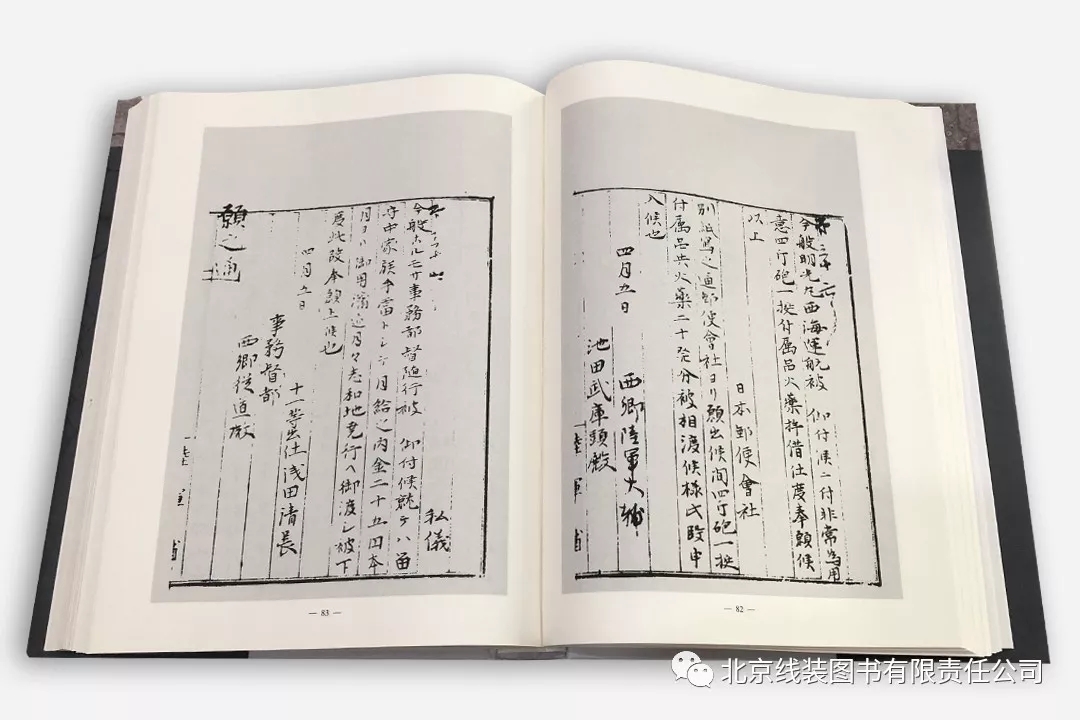 第二十六
今般明光丸西海運航被 仰付候ニ付非常為用
意四斤砲一挺付属品火薬拝借仕度奉願候
以上
日本郵便會社
別紙寫之通郵便會社ヨリ願出候間四斤砲一挺
付属品共火薬二十発分被相渡候様氏段申
入候也
四月五日
西郷陸軍大輔
池田武庫頭殿
陸軍
— 82 —
私儀
今般 事務都督随行被 仰付候就テハ留
守中家族手當トシテ月給之内金二十五円本
月ヨリ御用済迄月々 御渡シ被下
度此段奉願上候也
四月五日
十一等出仕浅田清長
事務督部
西郷従道殿
願之通
陸軍
— 83 —
北京线装图书有限责任公司